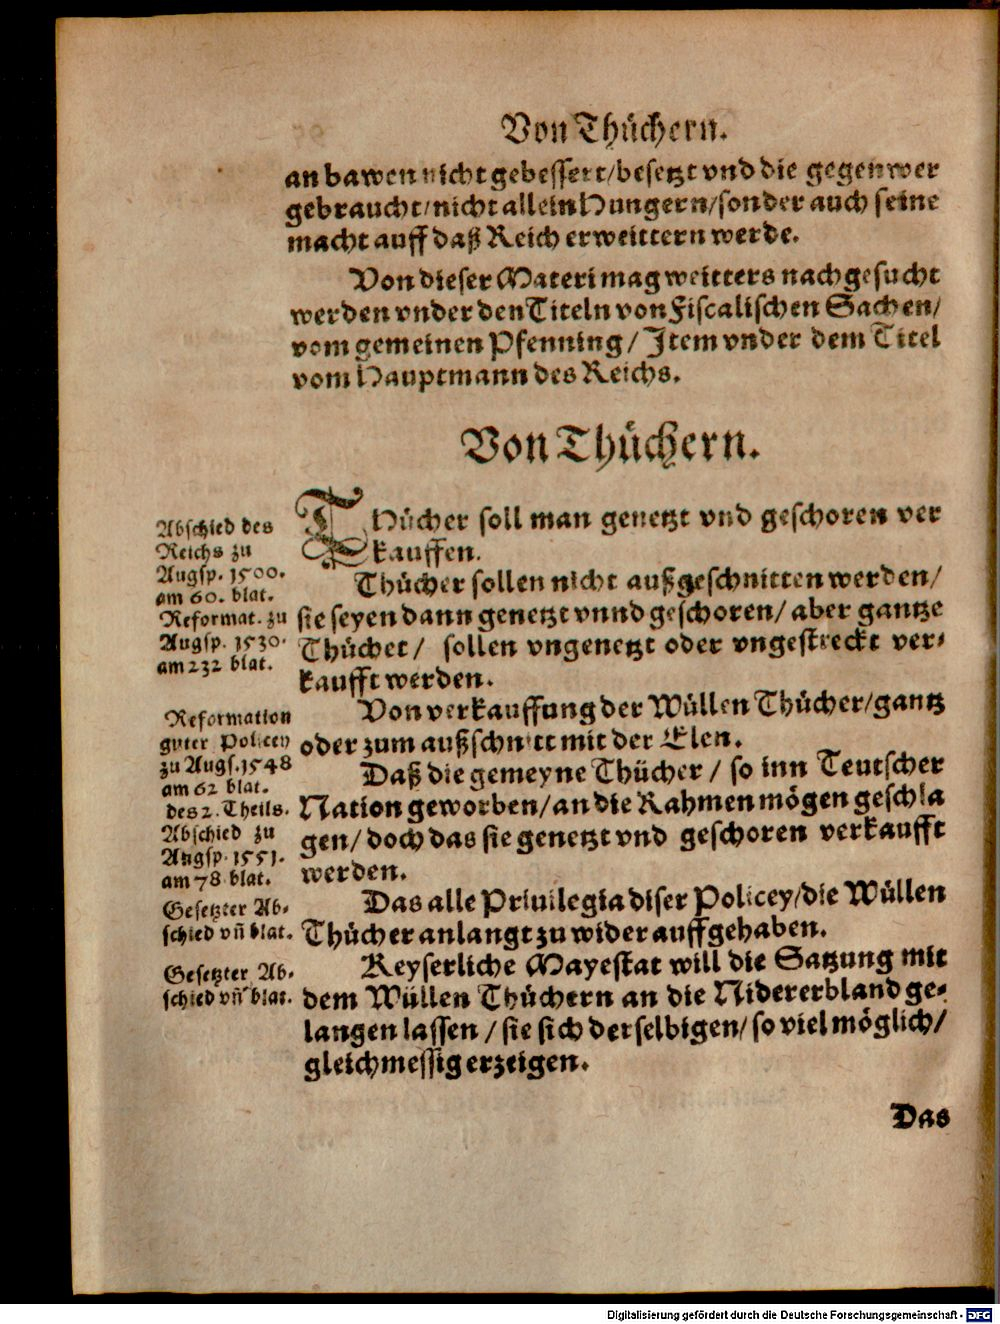 Von Thůchern.
an bawen nicht gebessert/besetzt vnd die gegenwer
gebraucht/nicht allein Hungern/sonder auch seine
macht auff daß Reich erweittern werde.
Von dieser Materi mag weitters nachgesucht
werden vnder den Titeln von Fiscalischen Sachen/
vom gemeinen Pfenning/ Item vnder dem Titel
vom Hauptmann des Reichs.
Von Thůchern.
Abschied des
Reichs zu
Augsp. 1500.
am 60. blat.
Reformat. zu
Augsp. 1530.
am 232 blat.
THůcher soll man genetzt vnd geschoren ver
kauffen.
Thůcher sollen nicht außgeschnitten werden/
sie seyen dann genetzt vnnd geschoren/ aber gantze
Thůchet/ sollen vngenetzt oder vngestreckt ver-
kaufft werden.
Reformation
guter Policey
zu Augs. 1548
am 62 blat.
des 2. Theils.
Abschied zu
Augsp. 1551.
am 78 blat.
Von verkauffung der Wůllen Thůcher/gantz
oder zum außschnitt mit der Elen.
Daß die gemeyne Thůcher / so inn Teutscher
Nation geworben/an die Rahmen mögen geschla
gen/ doch das sie genetzt vnd geschoren verkaufft
werden.
Gesetzter Ab-
schied vñ blat.
Das alle Priuilegia diser Policey/die Wůllen
Thůcher anlangt zu wider auffgehaben.
Gesetzter Ab-
schied vñ blat.
Keyserliche Mayestat will die Satzung mit
dem Wůllen Thůchern an die Nidererbland ge-
langen lassen / sie sich derselbigen/ so viel möglich/
gleichmessig erzeigen.
Das
Digitalisierung gefördert durch die Deutsche Forschungsgemeinschaft - DFG